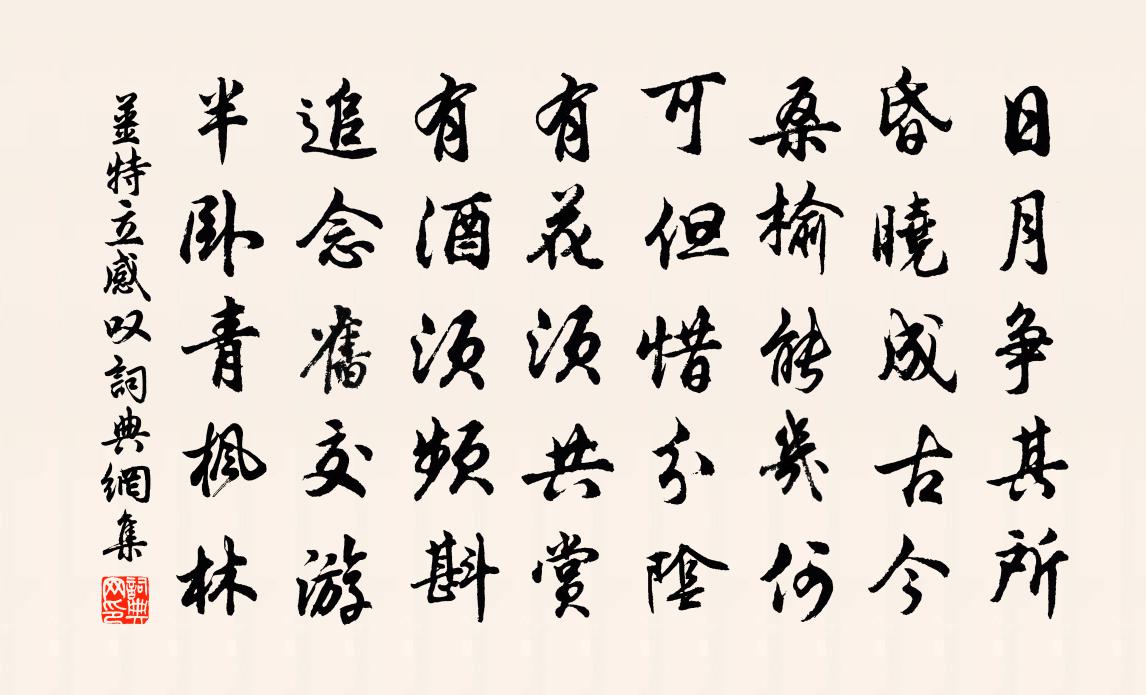 日月争其所
昏曉成古今
桑榆能幾何
可但惜分陰
有花須共賞
有酒須頻斟
追念舊交游
半卧青楓林
姜特立感叹詞典網集
詞典網印